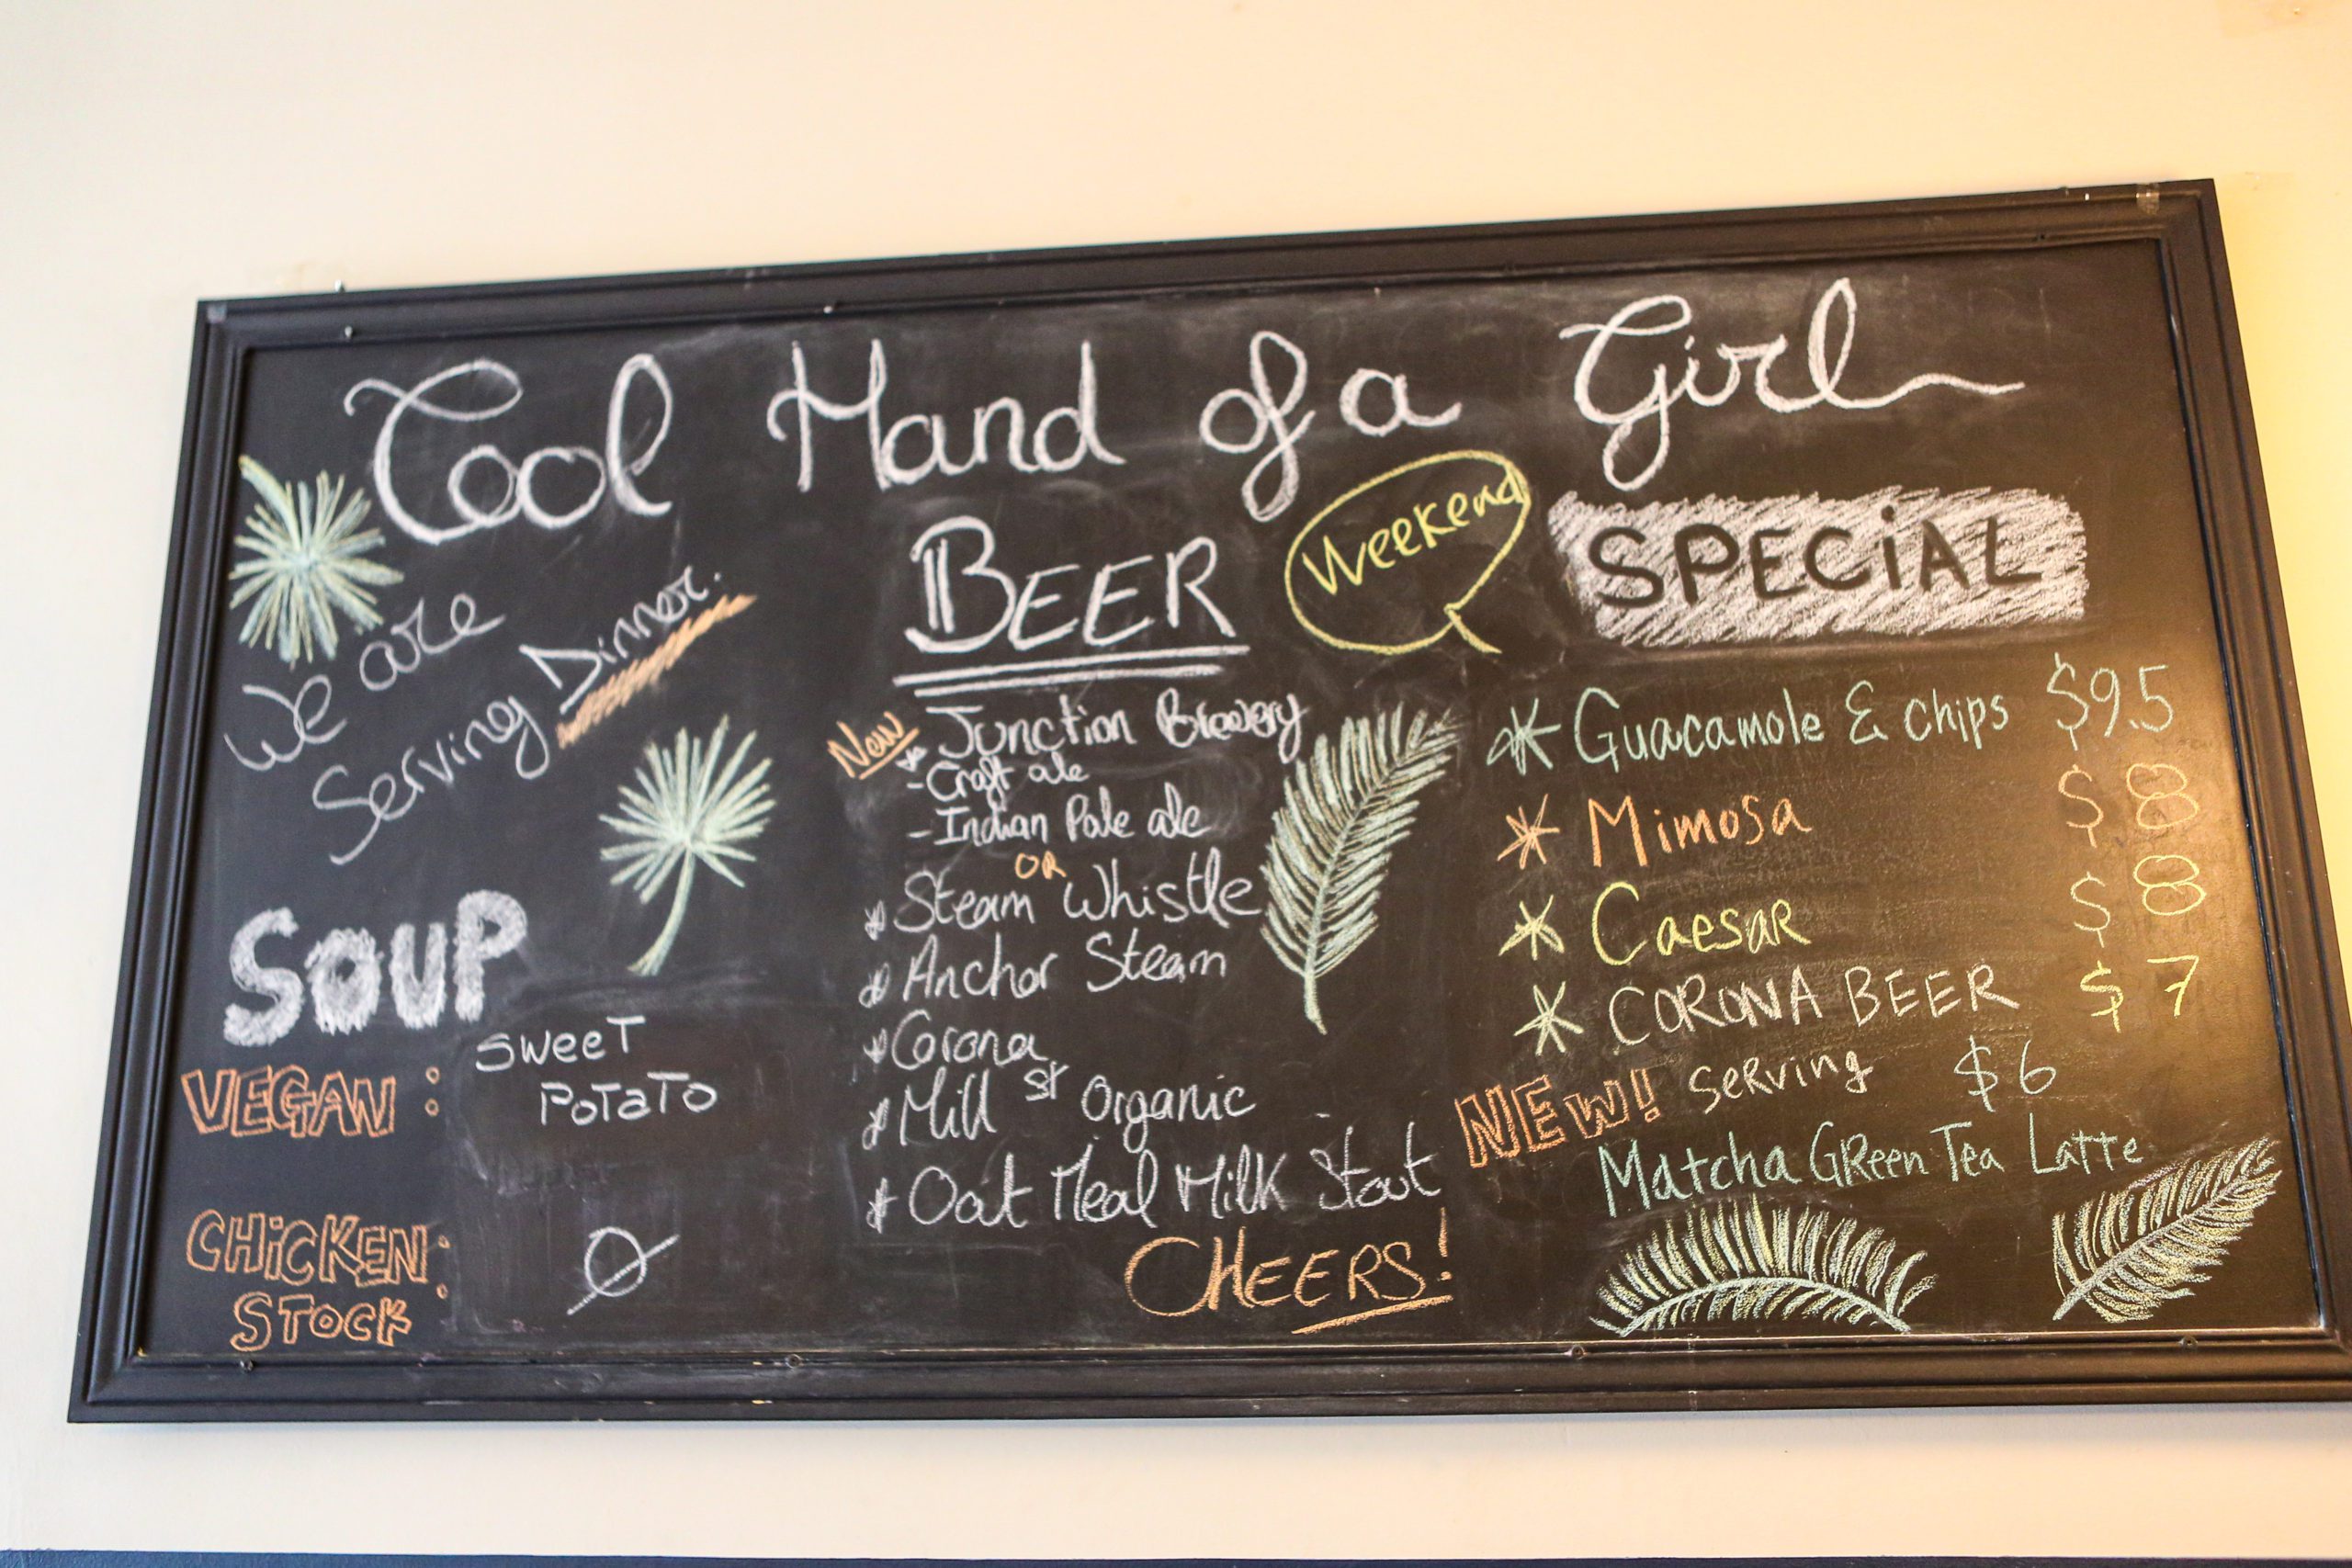 Cool Hand of a Girl
We are
Serving Dinner.
SOUP
VEGAN :
SWEET
POTATO
CHiCKEN:
STOCK
Ø
BEER
New
* Junction Brewery
- Craft ale
- Indian Pale ale
OR
* Steam Whistle
* Anchor Steam
* Corona
* Mill St Organic
* Oat Meal Milk Stout
CHEERS!
Weekend
SPECiAL
* Guacamole & chips $9.5
* Mimosa $8
* Caesar $8
* CORONA BEER $7
NEW! Serving $6
Matcha GReen Tea Latte